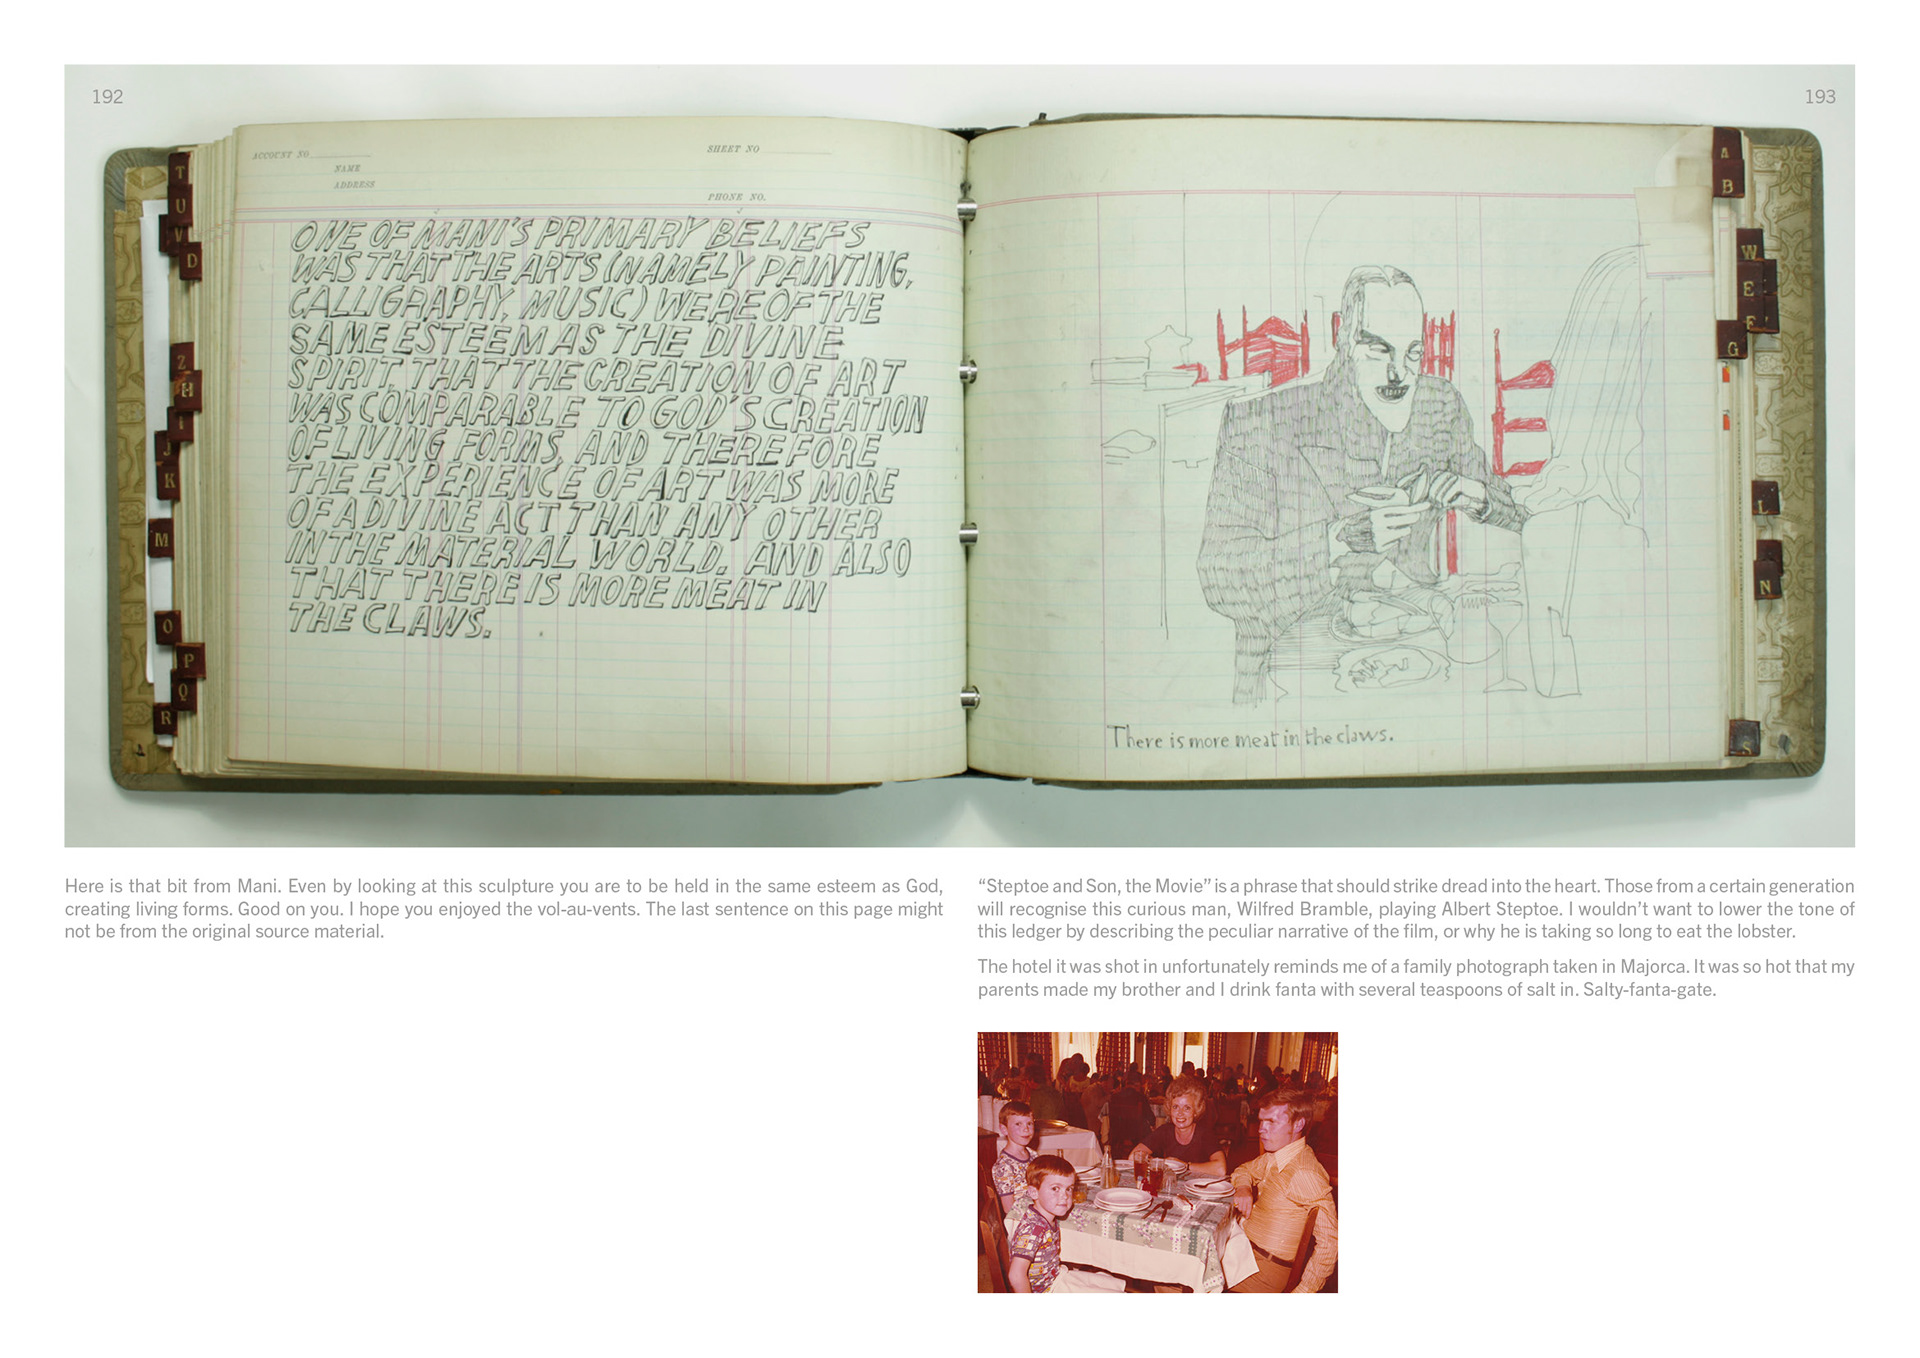 192
193
ACCOUNT NO
NAME
ADDRESS
SHEET NO
PHONE NO.
T
U
V
D
Z
H
I
J
K
M
O
P
Q
R
ONE OF MANI'S PRIMARY BELIEFS
WAS THAT THE ARTS (NAMELY PAINTING,
CALLIGRAPHY, MUSIC) WERE OF THE
SAME ESTEEM AS THE DIVINE
SPIRIT, THAT THE CREATION OF ART
WAS COMPARABLE TO GOD'S CREATION
OF LIVING FORMS, AND THEREFORE
THE EXPERIENCE OF ART WAS MORE
OF A DIVINE ACT THAN ANY OTHER
IN THE MATERIAL WORLD. AND ALSO
THAT THERE IS MORE MEAT IN
THE CLAWS.
There is more meat in the claws.
A
B
W
E
F
G
L
N
S
Here is that bit from Mani. Even by looking at this sculpture you are to be held in the same esteem as God,
creating living forms. Good on you. I hope you enjoyed the vol-au-vents. The last sentence on this page might
not be from the original source material.
“Steptoe and Son, the Movie” is a phrase that should strike dread into the heart. Those from a certain generation
will recognise this curious man, Wilfred Bramble, playing Albert Steptoe. I wouldn’t want to lower the tone of
this ledger by describing the peculiar narrative of the film, or why he is taking so long to eat the lobster.
The hotel it was shot in unfortunately reminds me of a family photograph taken in Majorca. It was so hot that my
parents made my brother and I drink fanta with several teaspoons of salt in. Salty-fanta-gate.